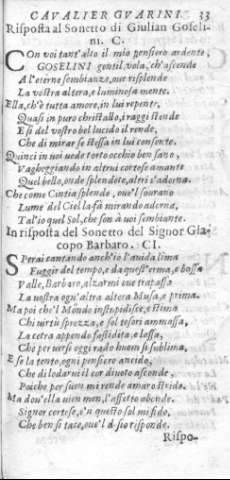 CAVALIER GVARINI. 33
Risposta al Sonetto di Giulian Goseli-
ni. C.
CON voi tant'alto il mio pensiero ardente,
GOSELINI gentil, vola, ch'ascende
A l'eterne sembianze, oue risplende
La vostra altera, e luminosa mente.
Ella, ch'è tutta amore, in lui repente,
Quasi in puro christallo, i raggi stende
E sì del vostro bel lucido il rende,
Che di mirar se stessa in lui consente.
Quinci in voi vede torto occhio ben sano,
Vagheggiando in altrui cortese amante
Quel bello, onde splendete, altri s'adorna.
Che come Cintia splende, oue'l sourano
Lume del Ciel la fà mirando adorna,
Tal'io quel Sol, che son à voi sembiante.
In risposta del Sonetto del Signor Gia-
copo Barbaro. CI.
SPerai cantando anch'io l'auida lima
Fuggir del tempo, e da quest'erma, e bassa
Valle, Barbaro, alzarmi oue trapassa
La vostra ogn'altra altera Musa, e prima.
Ma poi che'l Mondo instupidisce, e stima
Chi virtù sprezza, e sol tesori ammassa,
La cetra appendo fastidita, e lassa,
Chi per versi oggi rado huom si sublima,
E se la tento, ogni pensiero ancido,
Che di lodarui il cor diuoto ascende,
Poiche per suon mi rende amaro strido.
Ma dou'ella vien men, l'affetto abonde.
Signor cortese, e'n questo sol mi fido,
Che ben si tace, oue'l d sio risponde.
Rispo-